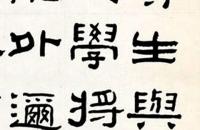 生與
學將
外邇